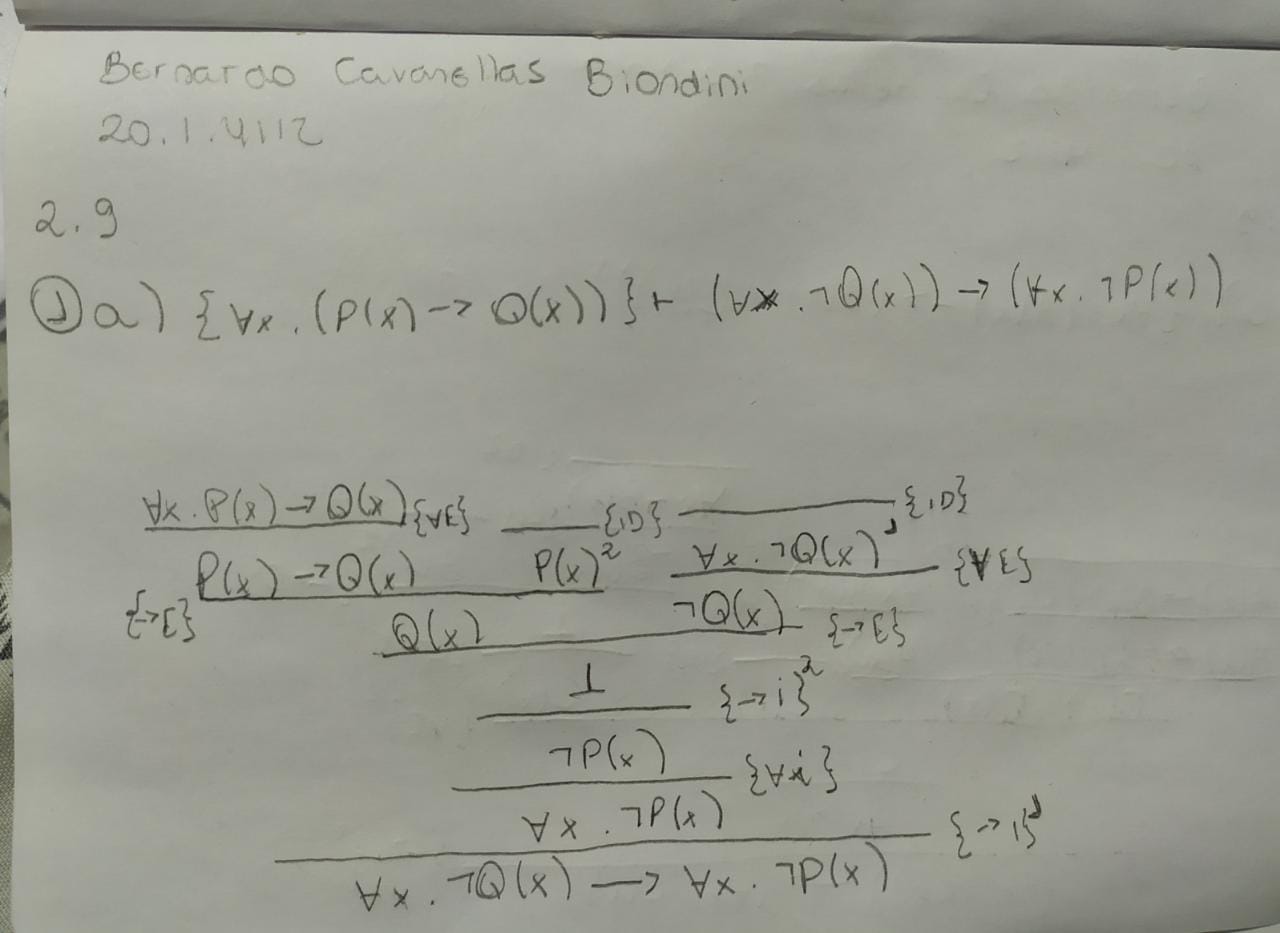 Bernardo Cavanellas Biondini
20.1.4112
2.9
① a) {∀x.(P(x)→Q(x))} ⊢ (∀x.¬Q(x))→(∀x.¬P(x))
∀x.P(x)→Q(x) {∀E} {ID} {ID}
P(x)→Q(x) P(x)² ∀x.¬Q(x)¹ {∀E}
{→E} Q(x) ¬Q(x) {→E}
⊥ {→i}²
¬P(x) {∀i}
∀x.¬P(x) {→i}¹
∀x.¬Q(x)→∀x.¬P(x)